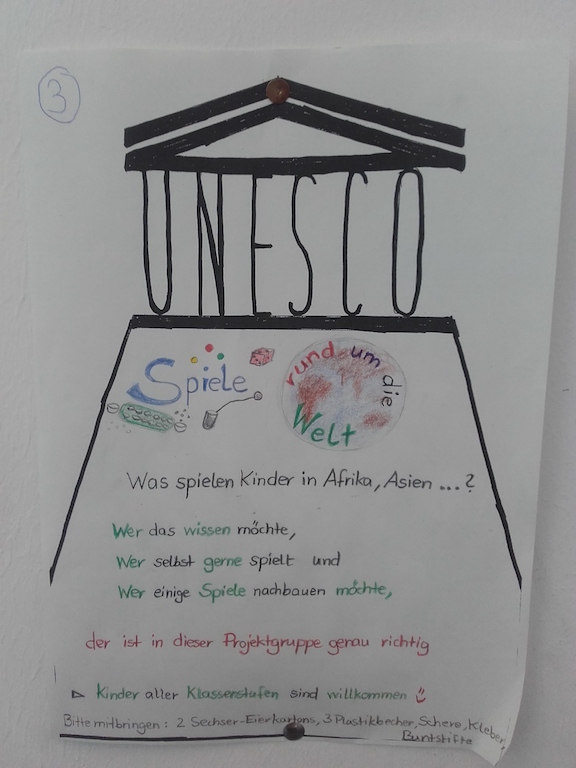 3
UNESCO
Spiele rund um die Welt
Was spielen Kinder in Afrika, Asien ...?
Wer das wissen möchte,
Wer selbst gerne spielt und
Wer einige Spiele nachbauen möchte,
der ist in dieser Projektgruppe genau richtig
Kinder aller Klassenstufen sind willkommen
Bitte mitbringen: 2 Sechser-Eierkartons, 3 Plastikbecher, Schere, Kleber,
Buntstifte